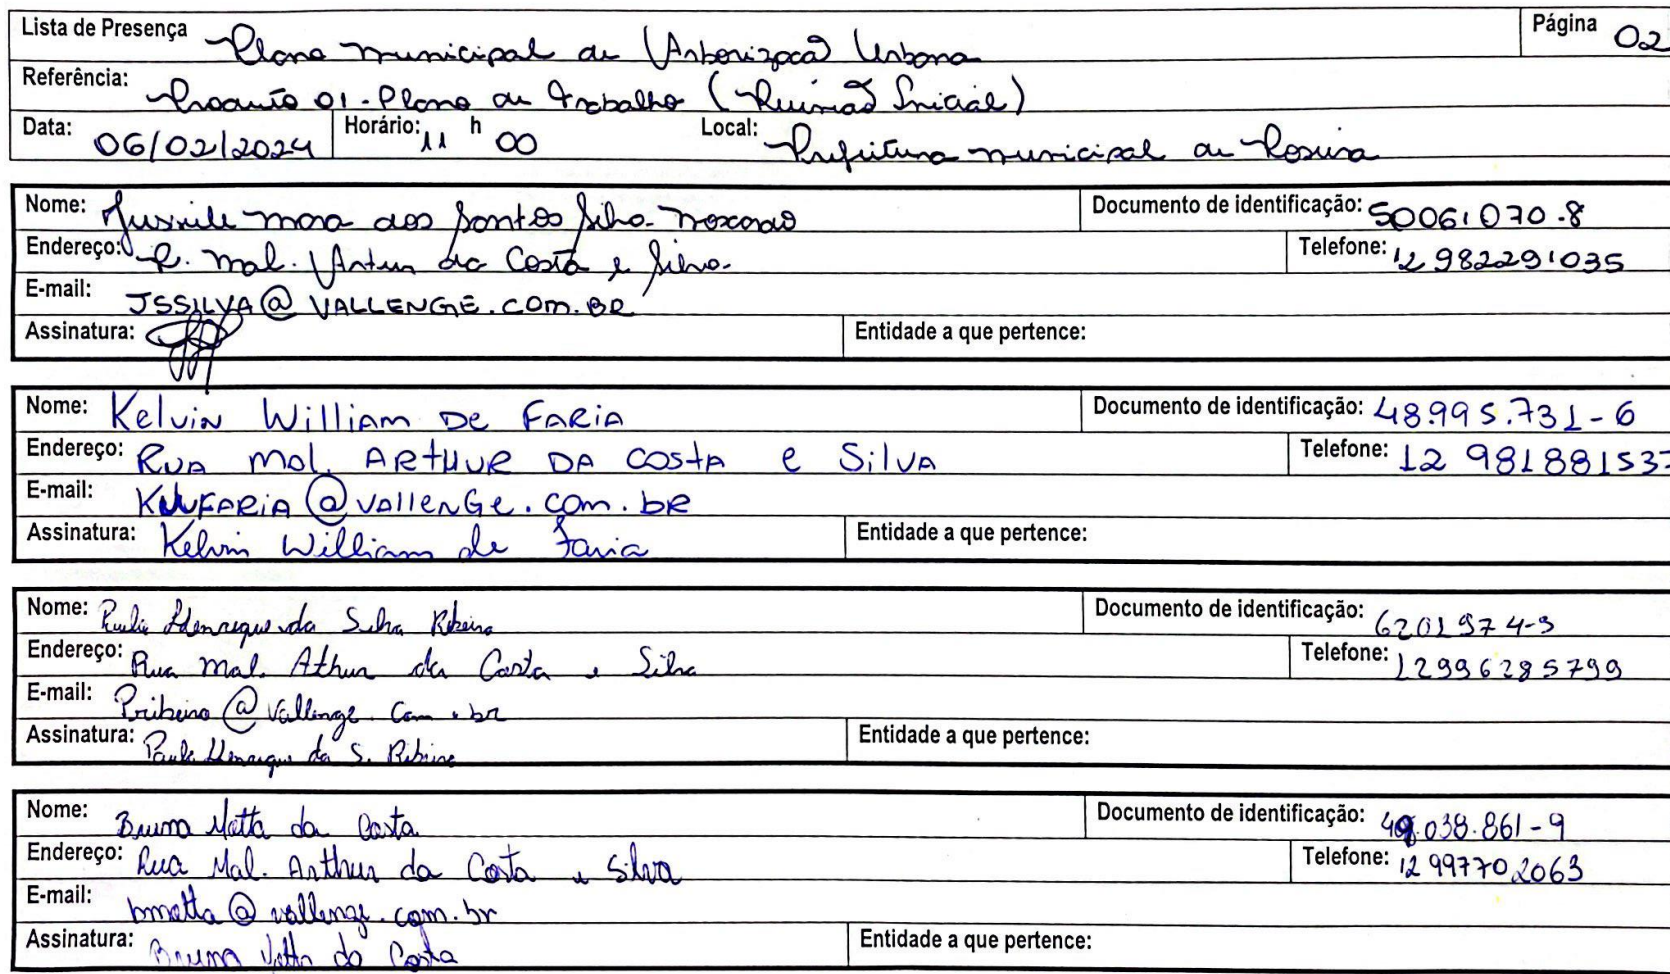 Lista de Presença Plano municipal de Arborização Urbana Página 02
Referência: Produto 01 - Plano de Trabalho (Reunião Inicial)
Data: 06/02/2024 Horário: 11 h 00 Local: Prefeitura municipal de Roseira
Nome: dos Santos Silva Documento de identificação: 50061070-8
Endereço: R. mal. Artur da Costa e Silva. Telefone: 12 982291035
E-mail: JSSILVA@VALLENGE.COM.BR
Assinatura: Entidade a que pertence:
Nome: Kelvin William De FARIA Documento de identificação: 48.995.731-6
Endereço: RUA mal. ARtHUR DA COStA e SilVA Telefone: 12 981881537
E-mail: @VAllenGe.com.bR
Assinatura: Kelvin William de Faria Entidade a que pertence:
Nome: Paulo Henrique da Silva Ribeiro Documento de identificação: 6201974-9
Endereço: Rua Mal. Athur da Costa e Silva Telefone: 12996285799
E-mail: Pribeiro@vallenge.com.br
Assinatura: Paulo Henrique da S. Ribeiro Entidade a que pertence:
Nome: Bruna Matta da Costa Documento de identificação: .038.861-9
Endereço: Rua Mal. Arthur da Costa e Silva Telefone: 12 997702063
E-mail: bmatta@vallenge.com.br
Assinatura: Bruna Matta da Costa Entidade a que pertence: